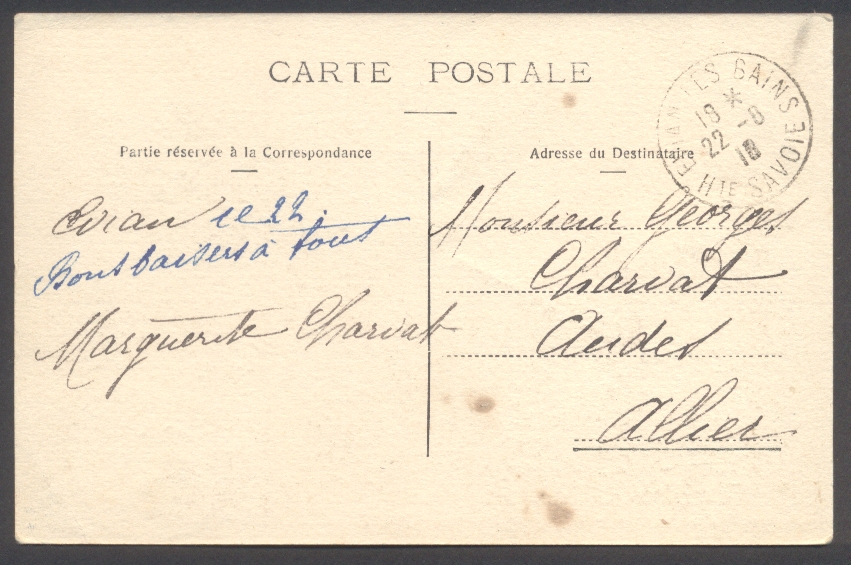 CARTE POSTALE
Partie réservée à la Correspondance
Evian le 22.
Bons baisers à tous
Marguerite Charvat
Adresse du Destinataire
Monsieur Georges
Charvat
Audes
Allier
EVIAN LES BAINS
19 *
22 -8
18
HTE SAVOIE